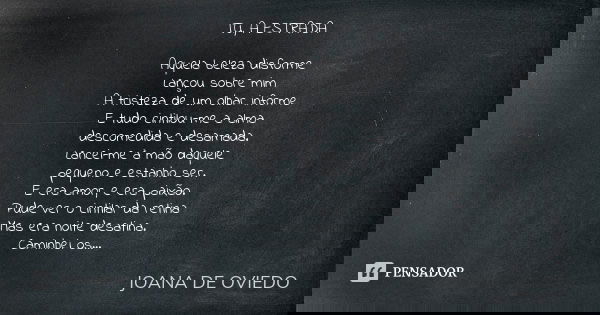 TU, A ESTRADA
Aquela beleza disforme
Lançou sobre mim
A tristeza de um olhar informe
E tudo cintilou-me a alma
descomedida e desamada.
Lancei-me à mão daquele
pequeno e estanho ser.
E era amor, e era paixão.
Pude ver o cintilar da retina
Mas era noite desafina.
Caminhei, os...
JOANA DE OVIEDO
PENSADOR